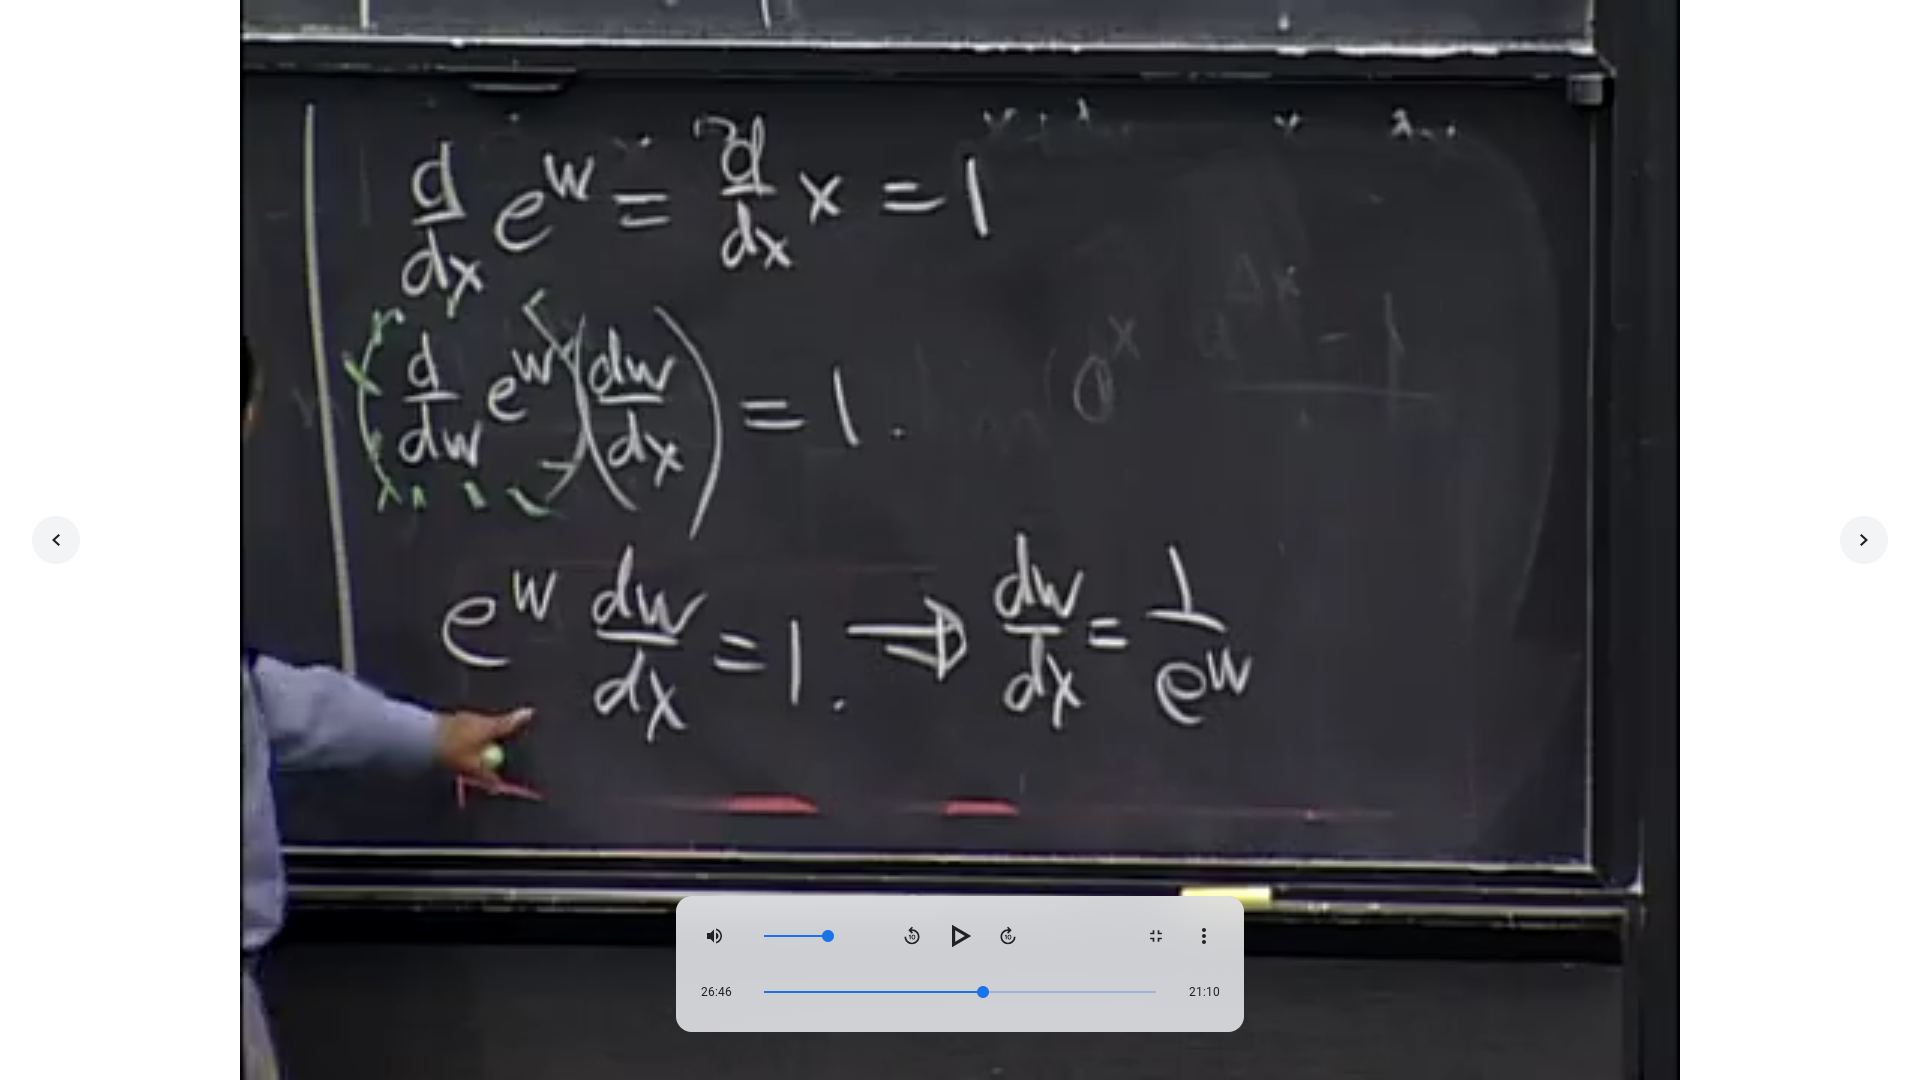 d/dx e^w = d/dx x = 1
(d/dw e^w)(dw/dx) = 1.
e^w dw/dx = 1. ⇒ dw/dx = 1/e^w
10 10
26:46 21:10